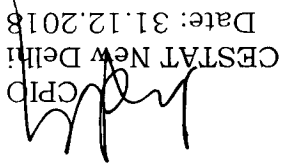 CPIO
CESTAT New Delhi
Date: 31.12.2018